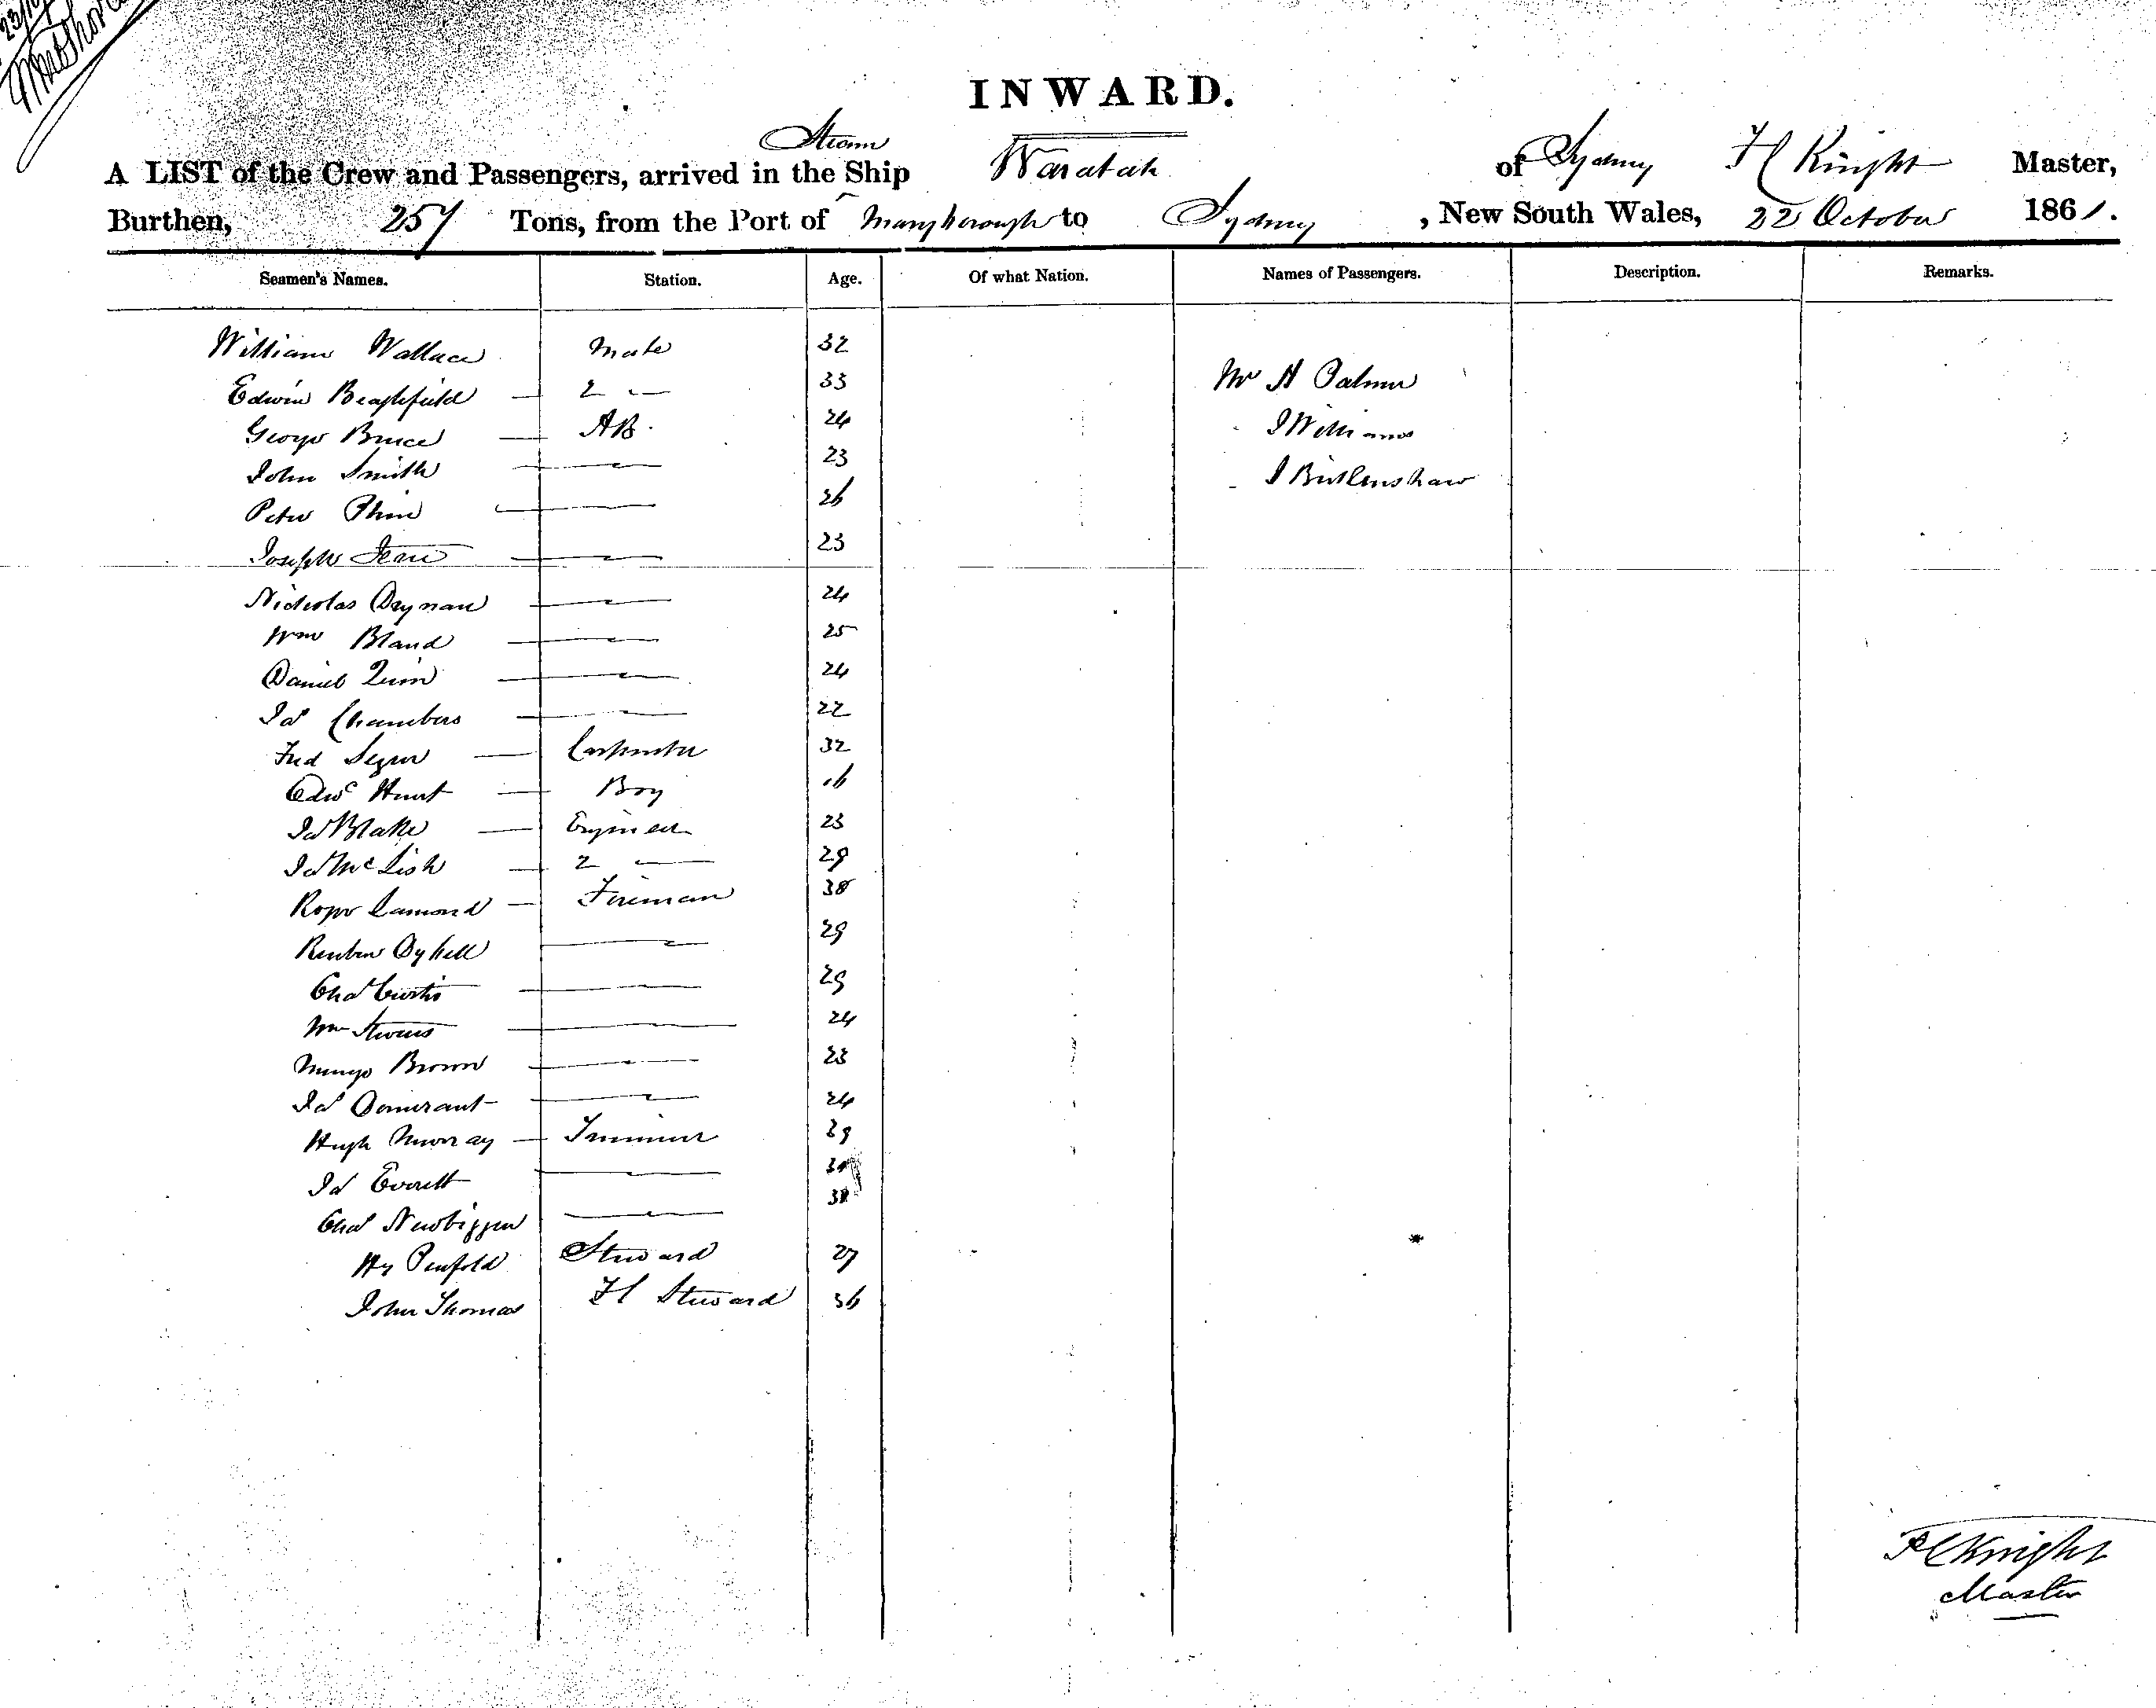 INWARD.
Steam
A LIST of the Crew and Passengers, arrived in the Ship Waratah of Sydney Knight Master,
Burthen, 257 Tons, from the Port of Maryborough to Sydney, New South Wales, 22 October 1861.
Seamen's Names. Station. Age. Of what Nation. Names of Passengers. Description. Remarks.
William Wallace Mate 32
Edwin 2 — 33 Mr H Palmer
George Bruce — AB. 24 J Williams
John Smith — 23 J Birkenshaw
Peter — 26
Joseph — 23
Nicholas — 24
Wm Bland — 25
Daniel Quin — 24
Jas Chambers — 22
Fred — Carpenter 32
Edwd Hunt — Boy 16
Jas Blake — Engineer 23
Jas McLish — 2 — 29
Lamond — Fireman 38
Reuben — 29
Chas Curtis — 29
Wm Stevens — 24
Mungo Brown — 23
Jas — 24
Hugh Murray — Trimmer 29
Jas Everett —
Chas Newbiggen —
Hy Penfold Steward 27
John Thomas Steward 36
Knight
Master